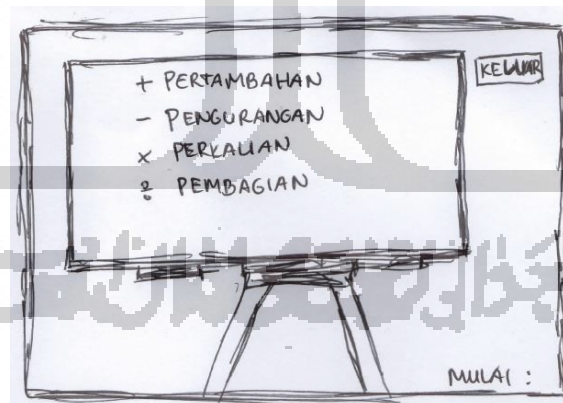 KELUAR
+ PERTAMBAHAN
- PENGURANGAN
× PERKALIAN
÷ PEMBAGIAN
MULAI :